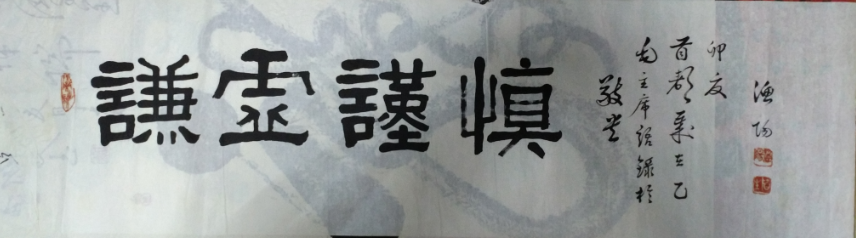 謙虛謹慎
敬書
毛主席語錄於
首都歲在乙
卯夏
漁陽